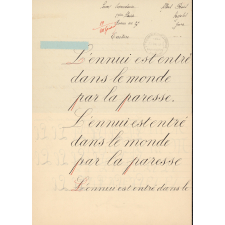 L'ennui est entré
dans le monde
par la paresse.
L'ennui est entré
dans le monde
par la paresse
L'ennui est entré dans le